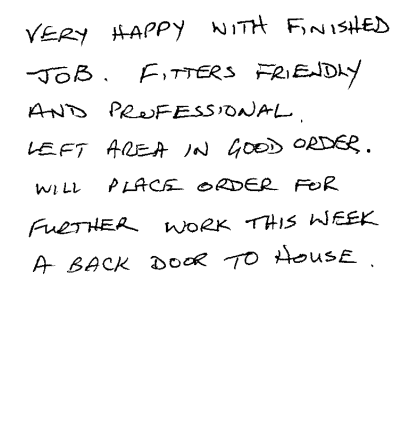 VERY HAPPY WITH FINISHED
JOB. FITTERS FRIENDLY
AND PROFESSIONAL.
LEFT AREA IN GOOD ORDER.
WILL PLACE ORDER FOR
FURTHER WORK THIS WEEK
A BACK DOOR TO HOUSE.